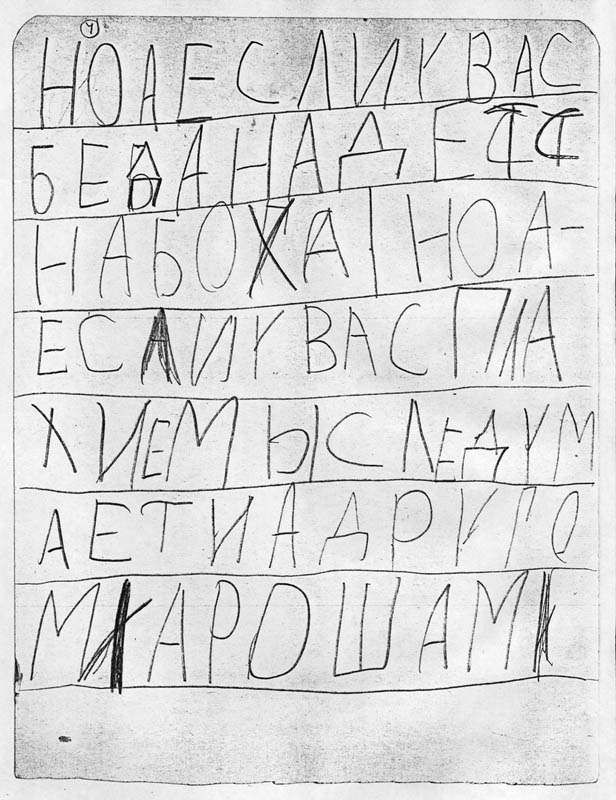 4
НОАЕСЛИУВАС
БЕДАНАДЕСС
НАБОХА|НОА-
ЕСЛИУВАСПЛА
ХИЕМЫСЛЕДУМ
АЕТИАДРУГО
МХАРОШАМ